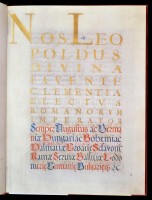 NOS LEO
POLDUS
DIVINA
FAVENTE
CLEMENTIA
ELECTUS
ROMANORUM
IMPERATOR
Semper Augustus ac Germa
niæ Hungariæ Bohemiæ
Dalmatiæ Croatiæ Sclavoniæ
Ramæ Serviæ Galliciæ Lodo
meriæ Cumaniæ Bulgariæq &c.